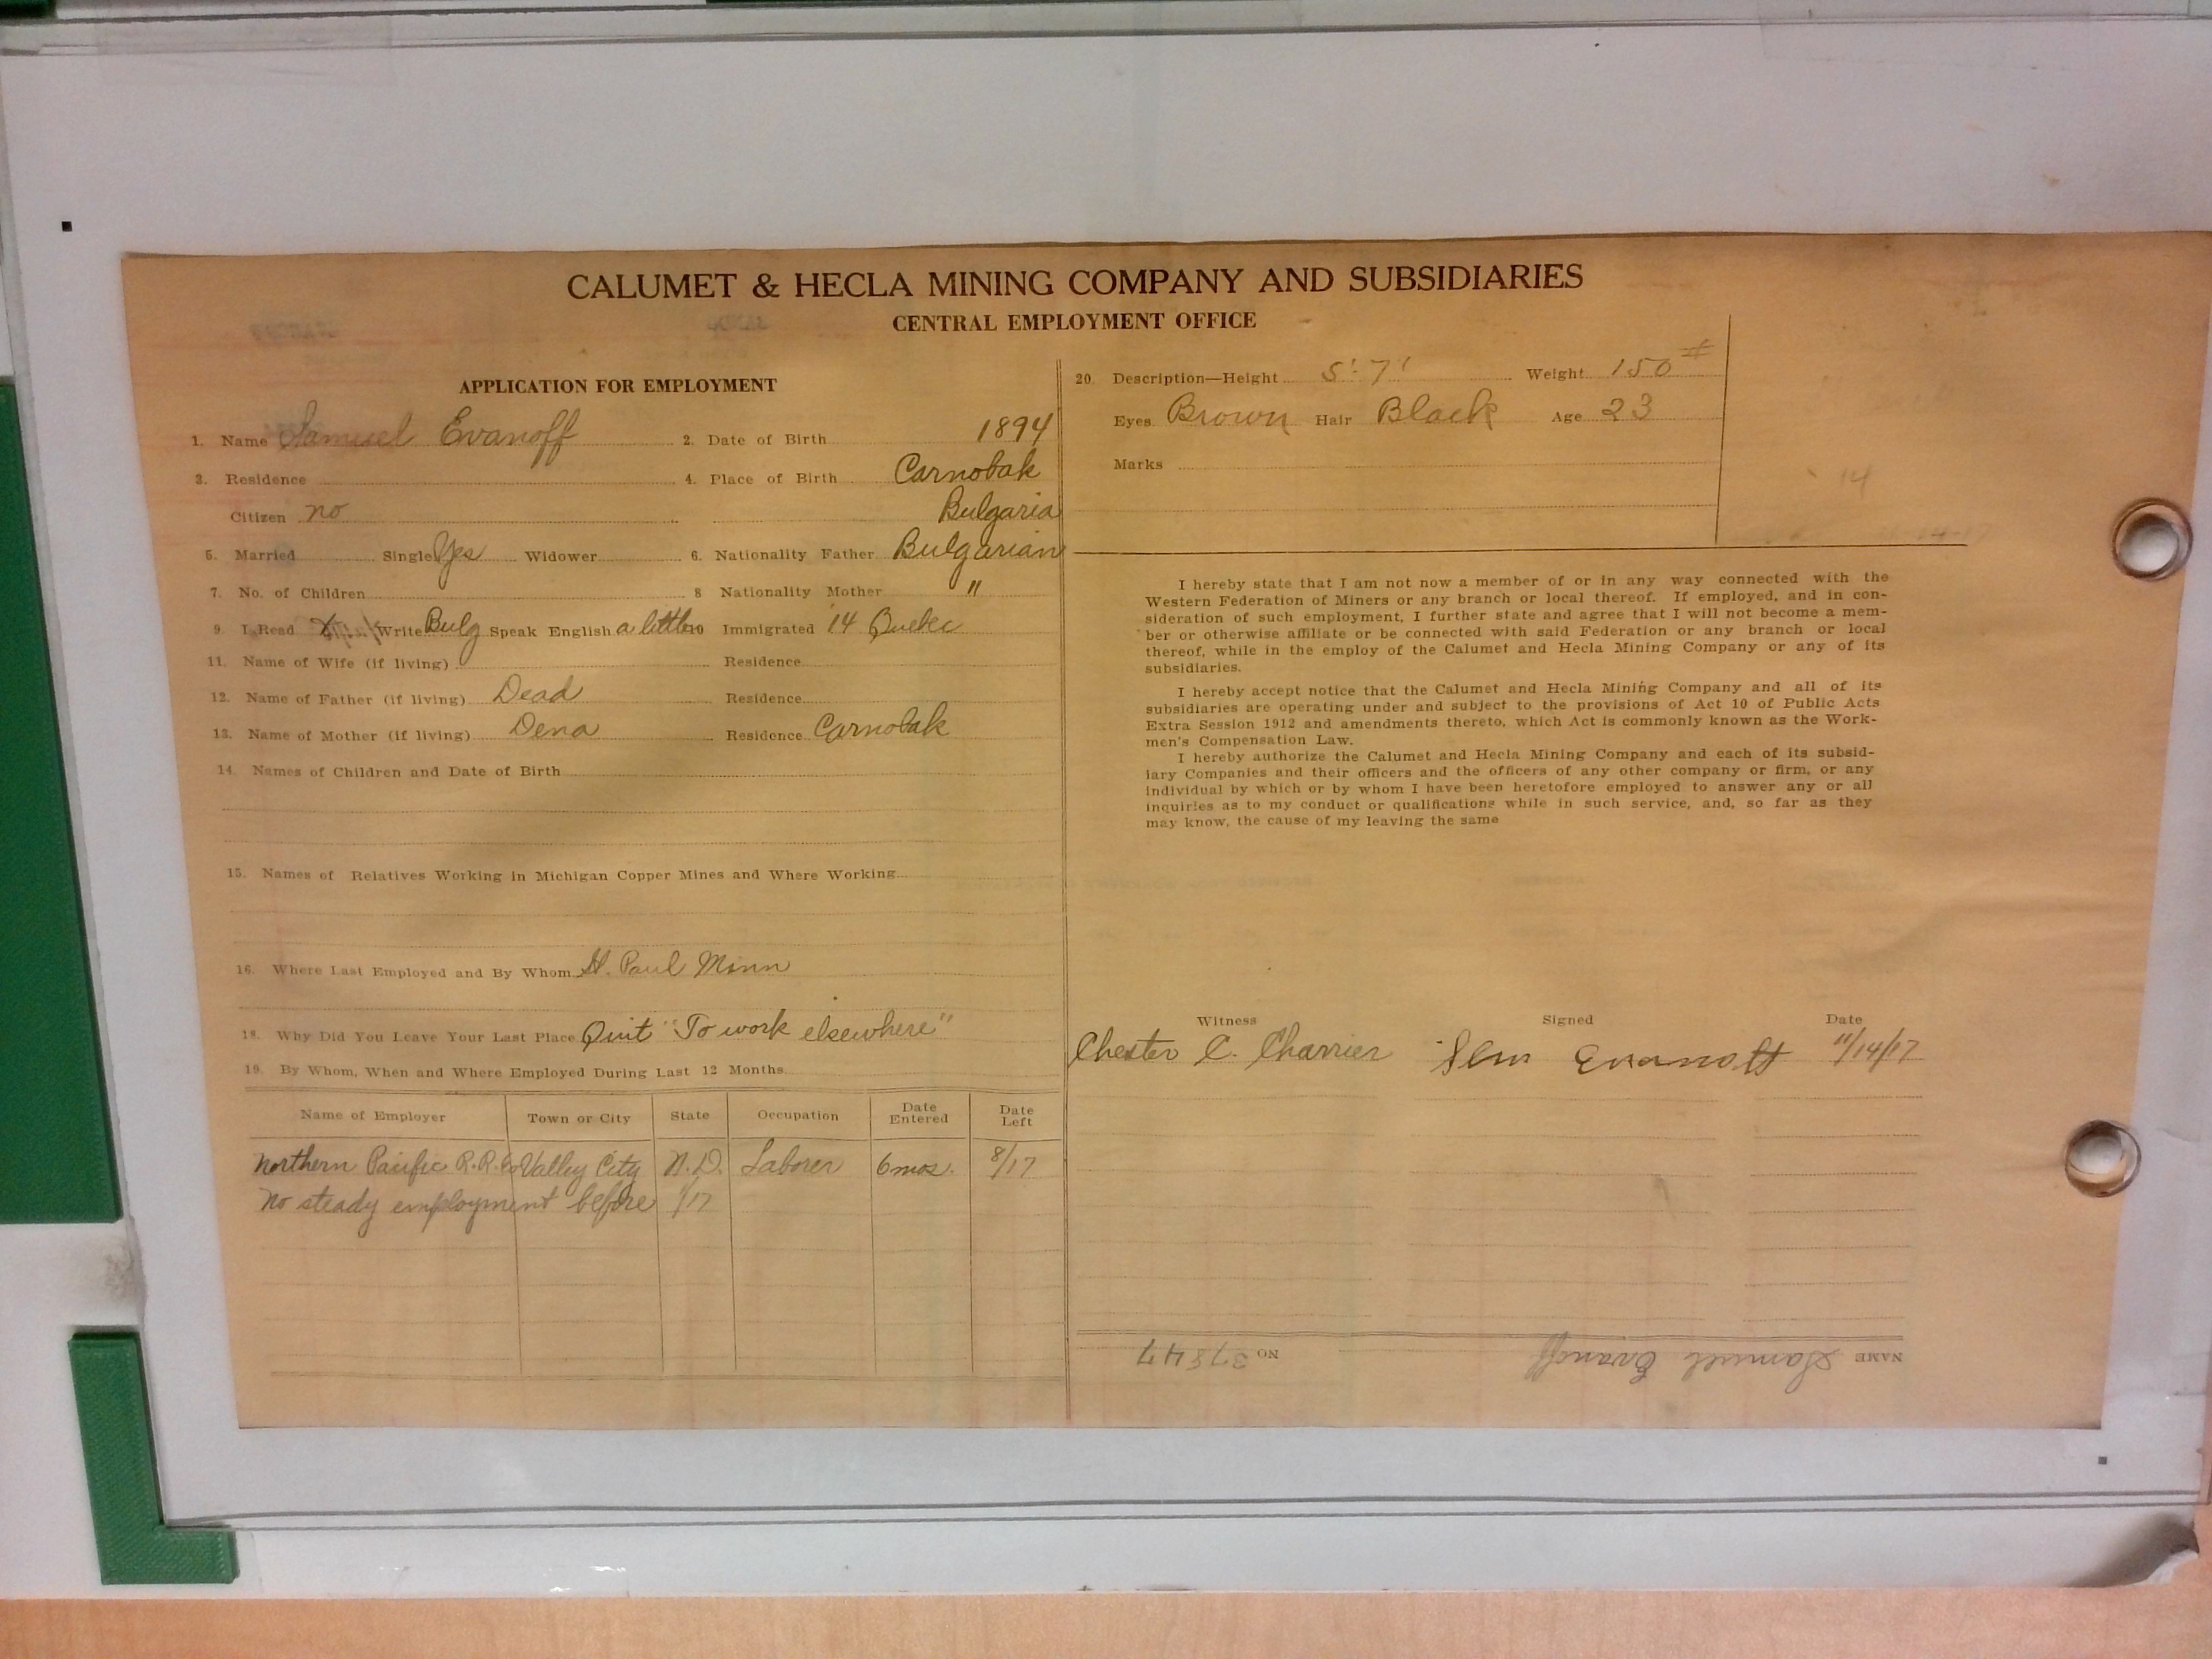 CALUMET & HECLA MINING COMPANY AND SUBSIDIARIES
CENTRAL EMPLOYMENT OFFICE
APPLICATION FOR EMPLOYMENT
1. Name Samuel Evanoff 2. Date of Birth 1894
3. Residence 4. Place of Birth Carnobak
Citizen no Bulgaria
5. Married Single Yes Widower 6. Nationality Father Bulgarian
7. No. of Children 8 Nationality Mother "
9. I Read Write Bulg Speak English a little 10 Immigrated '14 Quebec
11. Name of Wife (if living) Residence
12. Name of Father (if living) Dead Residence
13. Name of Mother (if living) Dena Residence Carnobak
14. Names of Children and Date of Birth
15. Names of Relatives Working in Michigan Copper Mines and Where Working
16. Where Last Employed and By Whom St. Paul Minn
18. Why Did You Leave Your Last Place Quit "To work elsewhere"
19. By Whom, When and Where Employed During Last 12 Months
Name of Employer Town or City State Occupation Date Entered Date Left
Northern Pacific R.R. Co Valley City N.D. Laborer 6 mos. 8/17
No steady employment before 1/17
20. Description—Height 5' 7' Weight 150 #
Eyes Brown Hair Black Age 23
Marks
14
I hereby state that I am not now a member of or in any way connected with the
Western Federation of Miners or any branch or local thereof. If employed, and in con-
sideration of such employment, I further state and agree that I will not become a mem-
ber or otherwise affiliate or be connected with said Federation or any branch or local
thereof, while in the employ of the Calumet and Hecla Mining Company or any of its
subsidiaries.
I hereby accept notice that the Calumet and Hecla Mining Company and all of its
subsidiaries are operating under and subject to the provisions of Act 10 of Public Acts
Extra Session 1912 and amendments thereto, which Act is commonly known as the Work-
men's Compensation Law.
I hereby authorize the Calumet and Hecla Mining Company and each of its subsid-
iary Companies and their officers and the officers of any other company or firm, or any
individual by which or by whom I have been heretofore employed to answer any or all
inquiries as to my conduct or qualifications while in such service, and, so far as they
may know, the cause of my leaving the same
Witness Signed Date
Chester C. Charrier Sem Evanoff 11/14/17
NAME Samuel Evanoff NO 37847